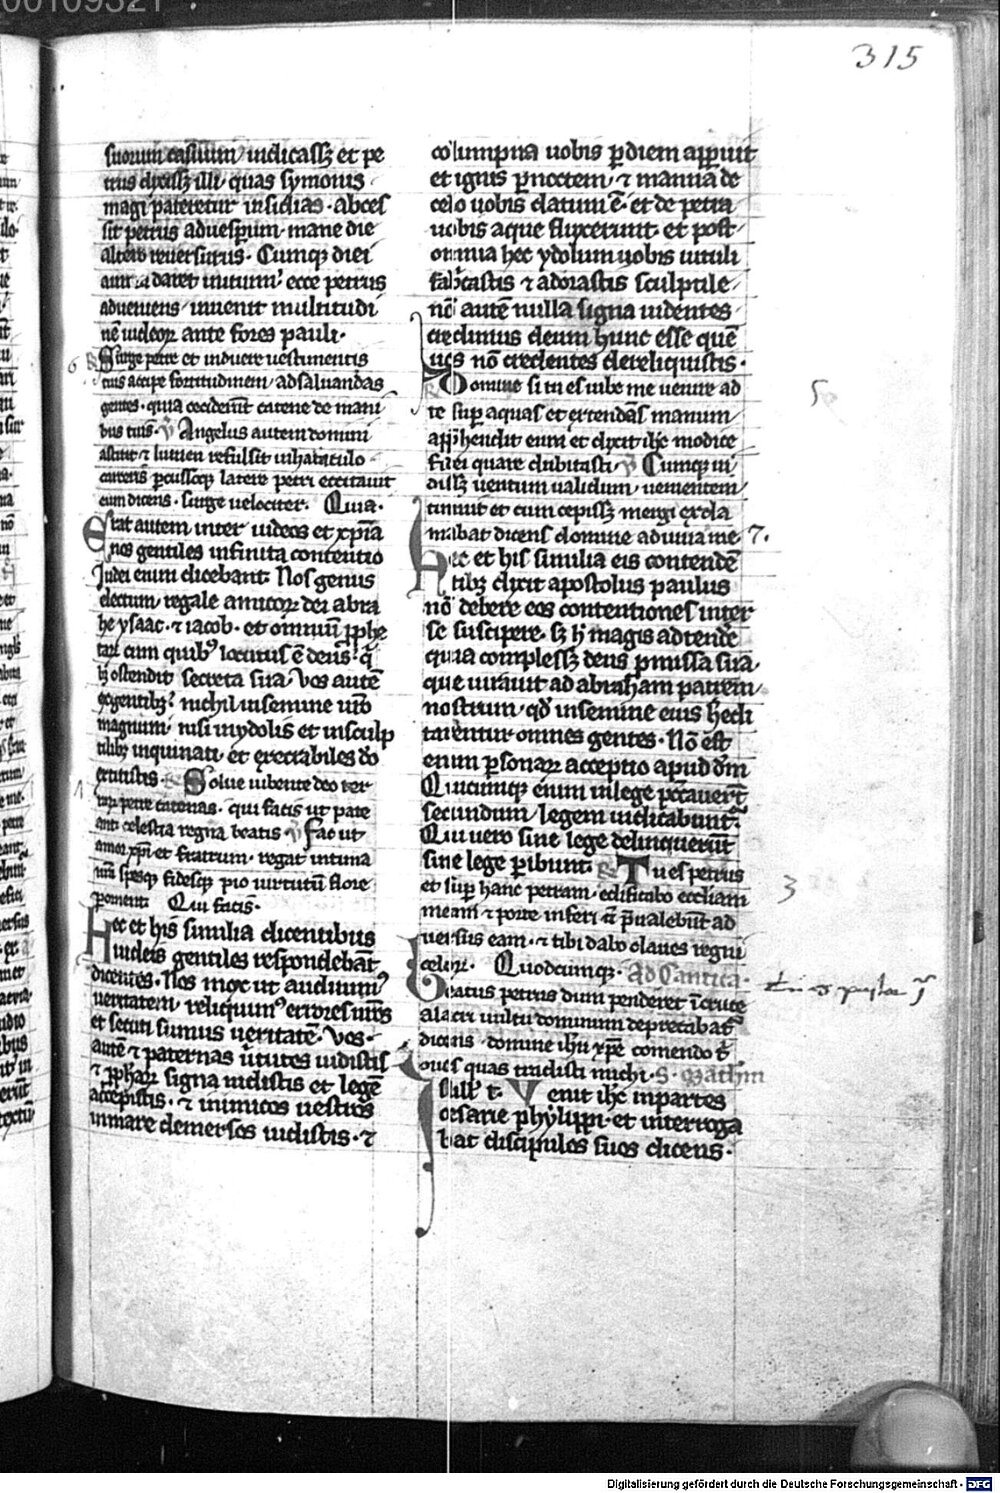 00109321
315
suorum casuum indicass⁊ et pe
trus dixiss⁊ illi quas symonis
magi pateretur insidias · absces
sit petrus aduesp̄um · mane die
altero reuersurus · Cumq₃ diei
aurora daret initium ecce petrus
adueniens inuenit multitudi
nē iudeoꝝ ante fores pauli ·
6 ꝶ Surge petre et induere uestimentis
tuis accipe fortitudinem ad saluandas
gentes · quia ceciderūt catene de mani
bus tuis · ℣ Angelus autem domini
astitit ⁊ lumen refulsit in habitaculo ·
carceris percussoq₃ latere petri excitauit
eum dicens · surge velociter · Quia ·
Erat autem inter iudeos et xp̄ia
nos gentiles infinita contentio
Judei enim dicebant Nos genus
electum regale amicoꝝ dei abra
he ysaac · ⁊ iacob · et omniū p̄phe
taꝝ cum quib₉ locutus ē deus · q̄
b₃ ostendit secreta sua · vos autē
ex gentib₃ nichil in semine ur̄o
magnum nisi in ydolis et insculp
tilib₃ inquinati et execrabiles do
extitistis · ꝶ Solue iubente deo ter
raꝝ petre catenas · qui facis ut pate
ant celestia regna beatis ℣ Fac ut
amor xp̄i et fratrum · regat intima
nr̄i spesq₃ fidesq₃ pio uirtutū flore
Qui facis ·
Hec et hiis similia dicentibus
iudeis gentiles respondebāt
dicentes · Nos mox ut audiuim₉
veritatem reliquim₉ errores nr̄os
et secuti sumus ueritatē · Vos
autē ⁊ paternas ūtutes uidistis
⁊ p̄phaꝝ signa uidistis et legē
accepistis · ⁊ inimicos uestros
in mare demersos uidistis · ⁊
columpna uobis p̱ diem apparuit
et ignis p̱ noctem · ⁊ manna de
celo uobis datum ē · et de petra
uobis aque fluxerunt · et post
omnia hec ydolum uobis uituli
fabricastis ⁊ adorastis sculptile
nō autē nulla signa uidentes
credimus deum hunc esse quē
uos nō credentes dereliquistis ·
ꝶ Domine si tu es iube me uenire ad
te sup̱ aquas et extendēs manum
app̄hendit eum et dixit ih̄c modice
fidei quare dubitasti ℣ Cumq₃ ui
diss⁊ uentum ualidum uenientem
timuit et cum cepiss⁊ mergi excla
mabat dicens domine adiuua me 7 ·
Hec et his similia eis contendē
tib₃ dixit apostolus paulus
nō debere eos contentiones inter
se suscipere · s⁊ h̄ magis attendē
quia compless⁊ deus p̱missa sua ·
que iurauit ad abraham patrem
nostrum · qd̄ in semine eius h̄edi
tarentur omnes gentes · Nō est
enim p̱sonaꝝ acceptio apud dm̄
Quicumq₃ enim in lege peccauerūt
secundum legem iudicabuntur
Qui uero sine lege delinquerūt
sine lege p̱ibunt · ꝶ Tu es petrus
et sup̱ hanc petram · edificabo eccliam
meam ⁊ porte inferi nō p̄ualebūt ad
uersus eam · ⁊ tibi dabo claues regni
celoꝝ · Quodcumq₃ · Ad Cantica ·
Beatus petrus dum penderet ī cruce
alacri uultu dominum deprecabat
dicens · domine ih̄u xp̄e comendo t̄
oues quas tradidisti michi · S · Mathm̄
In illo t · Venit ih̄c in partes
cesarie phylippi · et interroga
bat discipulos suos dicens ·
5
3
Digitalisierung gefördert durch die Deutsche Forschungsgemeinschaft - DFG